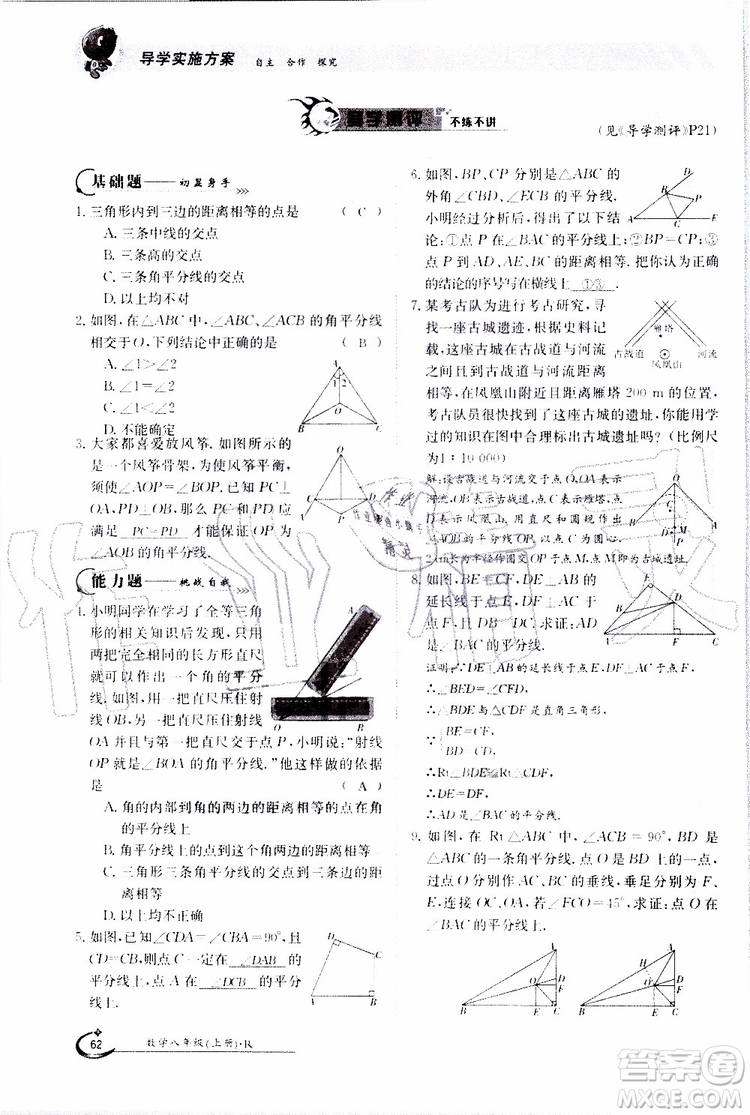 导学实施方案 自主 合作 探究
导学测评 不练不讲
(见《导学测评》P21)
基础题——初显身手
1. 三角形内到三边的距离相等的点是 ( C )
A. 三条中线的交点
B. 三条高的交点
C. 三条角平分线的交点
D. 以上均不对
2. 如图,在△ABC中,∠ABC,∠ACB的角平分线
相交于O,下列结论中正确的是 ( B )
A. ∠1>∠2
B. ∠1=∠2
C. ∠1<∠2
D. 不能确定
3. 大家都喜爱放风筝. 如图所示的
一个风筝骨架,为使风筝平衡,
须使∠AOP=∠BOP. 我们已知
PC⊥OA,PD⊥OB,那么PC和PD应
满足 PC=PD ,才能保证OP为
∠AOB的角平分线.
能力题——挑战自我
4. 小明同学在学习了全等三角
形的相关知识后发现,只用
两把完全相同的长方形直尺
就可以作出一个角的平分
线. 如图,用一把直尺压住射
线OB,另一把直尺压住射线
OA并且与第一把直尺交于点P,小明说:“射线
OP就是∠BOA的角平分线.”他这样做的依据
是 ( A )
A. 角的内部到角的两边的距离相等的点在角
的平分线上
B. 角平分线上的点到角的两边的距离相等
C. 三角形三条角平分线的交点到三条边的距
离相等
D. 以上均不正确
5. 如图,已知∠CDA=∠CBA=90°,且
CD=CB,则点C一定在 ∠DAB 的
平分线上,点A在 ∠DCB 的平分
线上.
6. 如图,BP、CP分别是△ABC的
外角∠CBD、∠BCE的平分线,
小明经过分析后,得出了以下结
论:①点P在∠BAC的平分线上;②BP=CP;③
点P到AD、AE、BC的距离相等. 把你认为正确
的结论的序号写在横线上 ①③ .
7. 某考古队为进行考古研究,寻
找一座古城遗迹,根据史料记
载,这座古城在古战道与河流
之间且到古战道与河流的距离
相等,在凤凰山附近且距雁塔200 m的位置,
考古队员们很快找到了这座古城的遗址,你能运用
学过的知识在图中合理标出古城的遗址吗?(比例尺
为1∶10 000)
解:设古战道与河流交于点O,OA表示
河流,OB表示古战道,点C表示雁塔,点
D表示凤凰山,用直尺和圆规作
2㎝长为半径作圆交OP于点M,点M即为古城遗址.
8. 如图,BE=CF,DE⊥AB的
延长线于点E,DF⊥AC于
点F,且DB=DC. 求证:AD
是∠BAC的平分线.
证明:∵DE⊥AB,DF⊥AC,
∴∠BED=∠CFD,
∴△BDE与△CDF是直角三角形.
∵{BE=CF,
BD=CD,
∴Rt△BDE≌Rt△CDF,
∴DE=DF,
∴AD是∠BAC的平分线.
9. 如图,在Rt△ABC中,∠ACB=90°,BD是
△ABC的一条角平分线. 点O是BD上的一点,
过点O分别作AC、BC的垂线,垂足分别为F、
E,连接OC、OA,若∠FCO=45°,求证:点O在
∠BAC的平分线上.
雁塔
古战道 凤凰山 河流
62 数学八年级(上册)·R